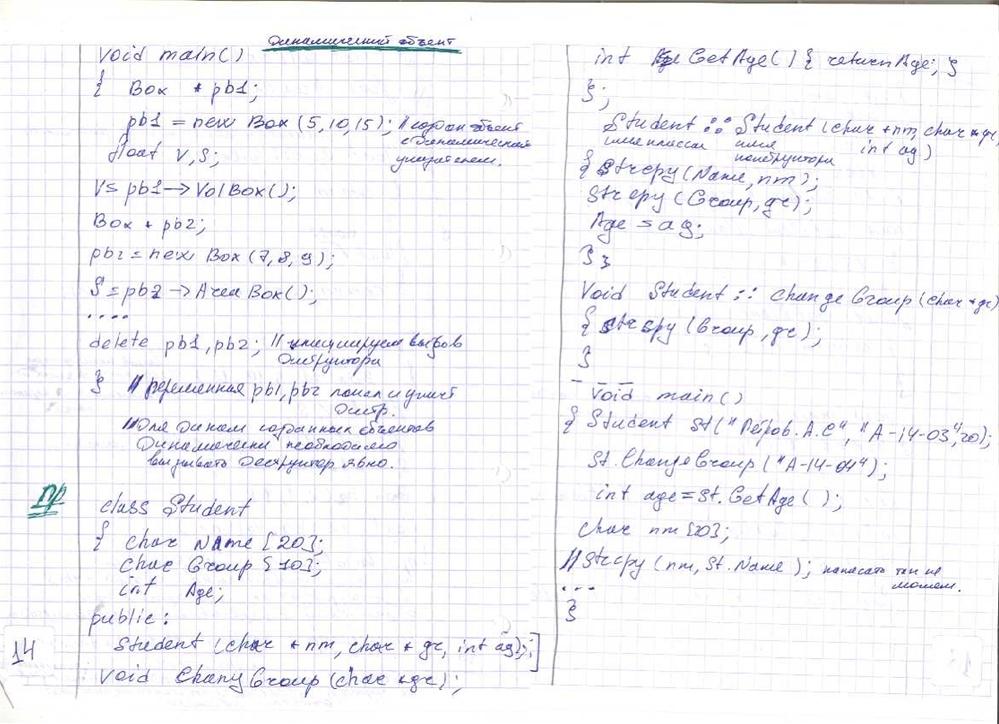 Динамический объект
void main()
{ Box *pb1;
pb1 = new Box (5,10,15); // создан объект
с динамическая
указателем.
float V,S;
V = pb1→VolBox();
Box * pb2;
pb2 = new Box (7,8,9);
S = pb2 → AreaBox();
....
delete pb1, pb2; // инициируем вызов
деструктора
} // переменная pb1, pb2
// Для динам созданных объектов
Динамически необходимо
вызывать деструктор явно.
Пр
class Student
{ char Name [20];
char Group [10];
int Age;
public:
Student (char *nm, char * gr, int ag);
void ChangGroup (char *gr);
14
int GetAge() { return Age; }
};
Student :: Student (char *nm, char *gr,
имя класса имя int ag)
конструктора
{ Strcpy (Name, nm);
Strcpy (Group, gr);
Age = ag;
} }
Void Student :: changeGroup (char *gr)
{ strcpy (Group, gr);
}
void main()
{ Student St("Петров.А.С", "А-14-03", 20);
St.ChangeGroup ("А-14-04");
int age = St.GetAge ();
char nm [20];
// Strcpy (nm, St.Name); написать так не
можем.
...
}